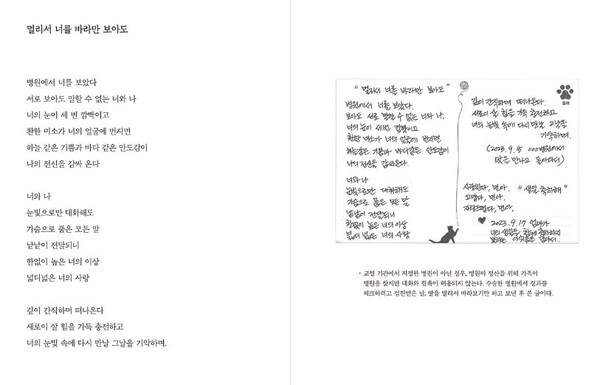 멀리서 너를 바라만 보아도
병원에서 너를 보았다
서로 보아도 말할 수 없는 너와 나
너의 눈이 세 번 깜빡이고
환한 미소가 너의 얼굴에 번지면
하늘 같은 기쁨과 바다 같은 안도감이
나의 전신을 감싸 온다
너와 나
눈빛으로만 대화해도
가슴으로 품은 모든 말
낱낱이 전달되니
한없이 높은 너의 이상
넓디넓은 너의 사랑
깊이 간직하며 떠나온다
새로이 살 힘을 가득 충전하고
너의 눈빛 속에 다시 만날 그날을 기약하며.
"멀리서 너를 바라만 보아도"
병원에서 너를 보았다.
너의 눈이 세 번 깜빡이고
환한 미소가 너의 얼굴에 번지면
나의 전신을 감싸온다.
너와 나
눈빛으로만 대화해도
가슴으로 품은 모든 말
낱낱이 전달되니
한없이 높은 너의 이상
넓디 넓은 너의 사랑
깊이 간직하며 떠나온다.
새로이 살 힘을 가득 충전하고
너의 눈빛 속에 다시 만날 그날을
기약하며.
(2023. 9. 5 000병원에서
딸을 만나고 돌아와서)
사랑한다, 딸아. "생일 축하해"
고맙다, 딸아.
자랑스럽다, 딸아.
2023. 9. 17 엄마가
* 교정 기관에서 지정한 병원이 아닌 경우, 병원비 정산을 위해 가족이
병원을 찾지만 대화와 접촉이 허용되지 않는다. 수술한 병원에서 경과를
체크하려고 검진받은 날, 딸을 멀리서 바라보기만 하고 보낸 후 쓴 글이다.